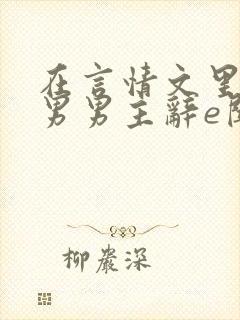 在言情文里
男男主辭e
柳嚴深